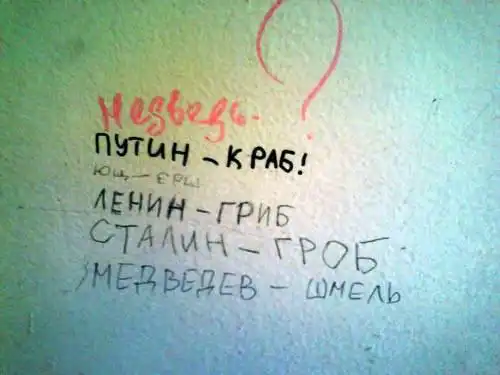 ?
Медведь-
ПУТИН - КРАБ!
ЮЩ - ЕРШ
ЛЕНИН - ГРИБ
СТАЛИН - ГРОБ
МЕДВЕДЕВ - ШМЕЛЬ